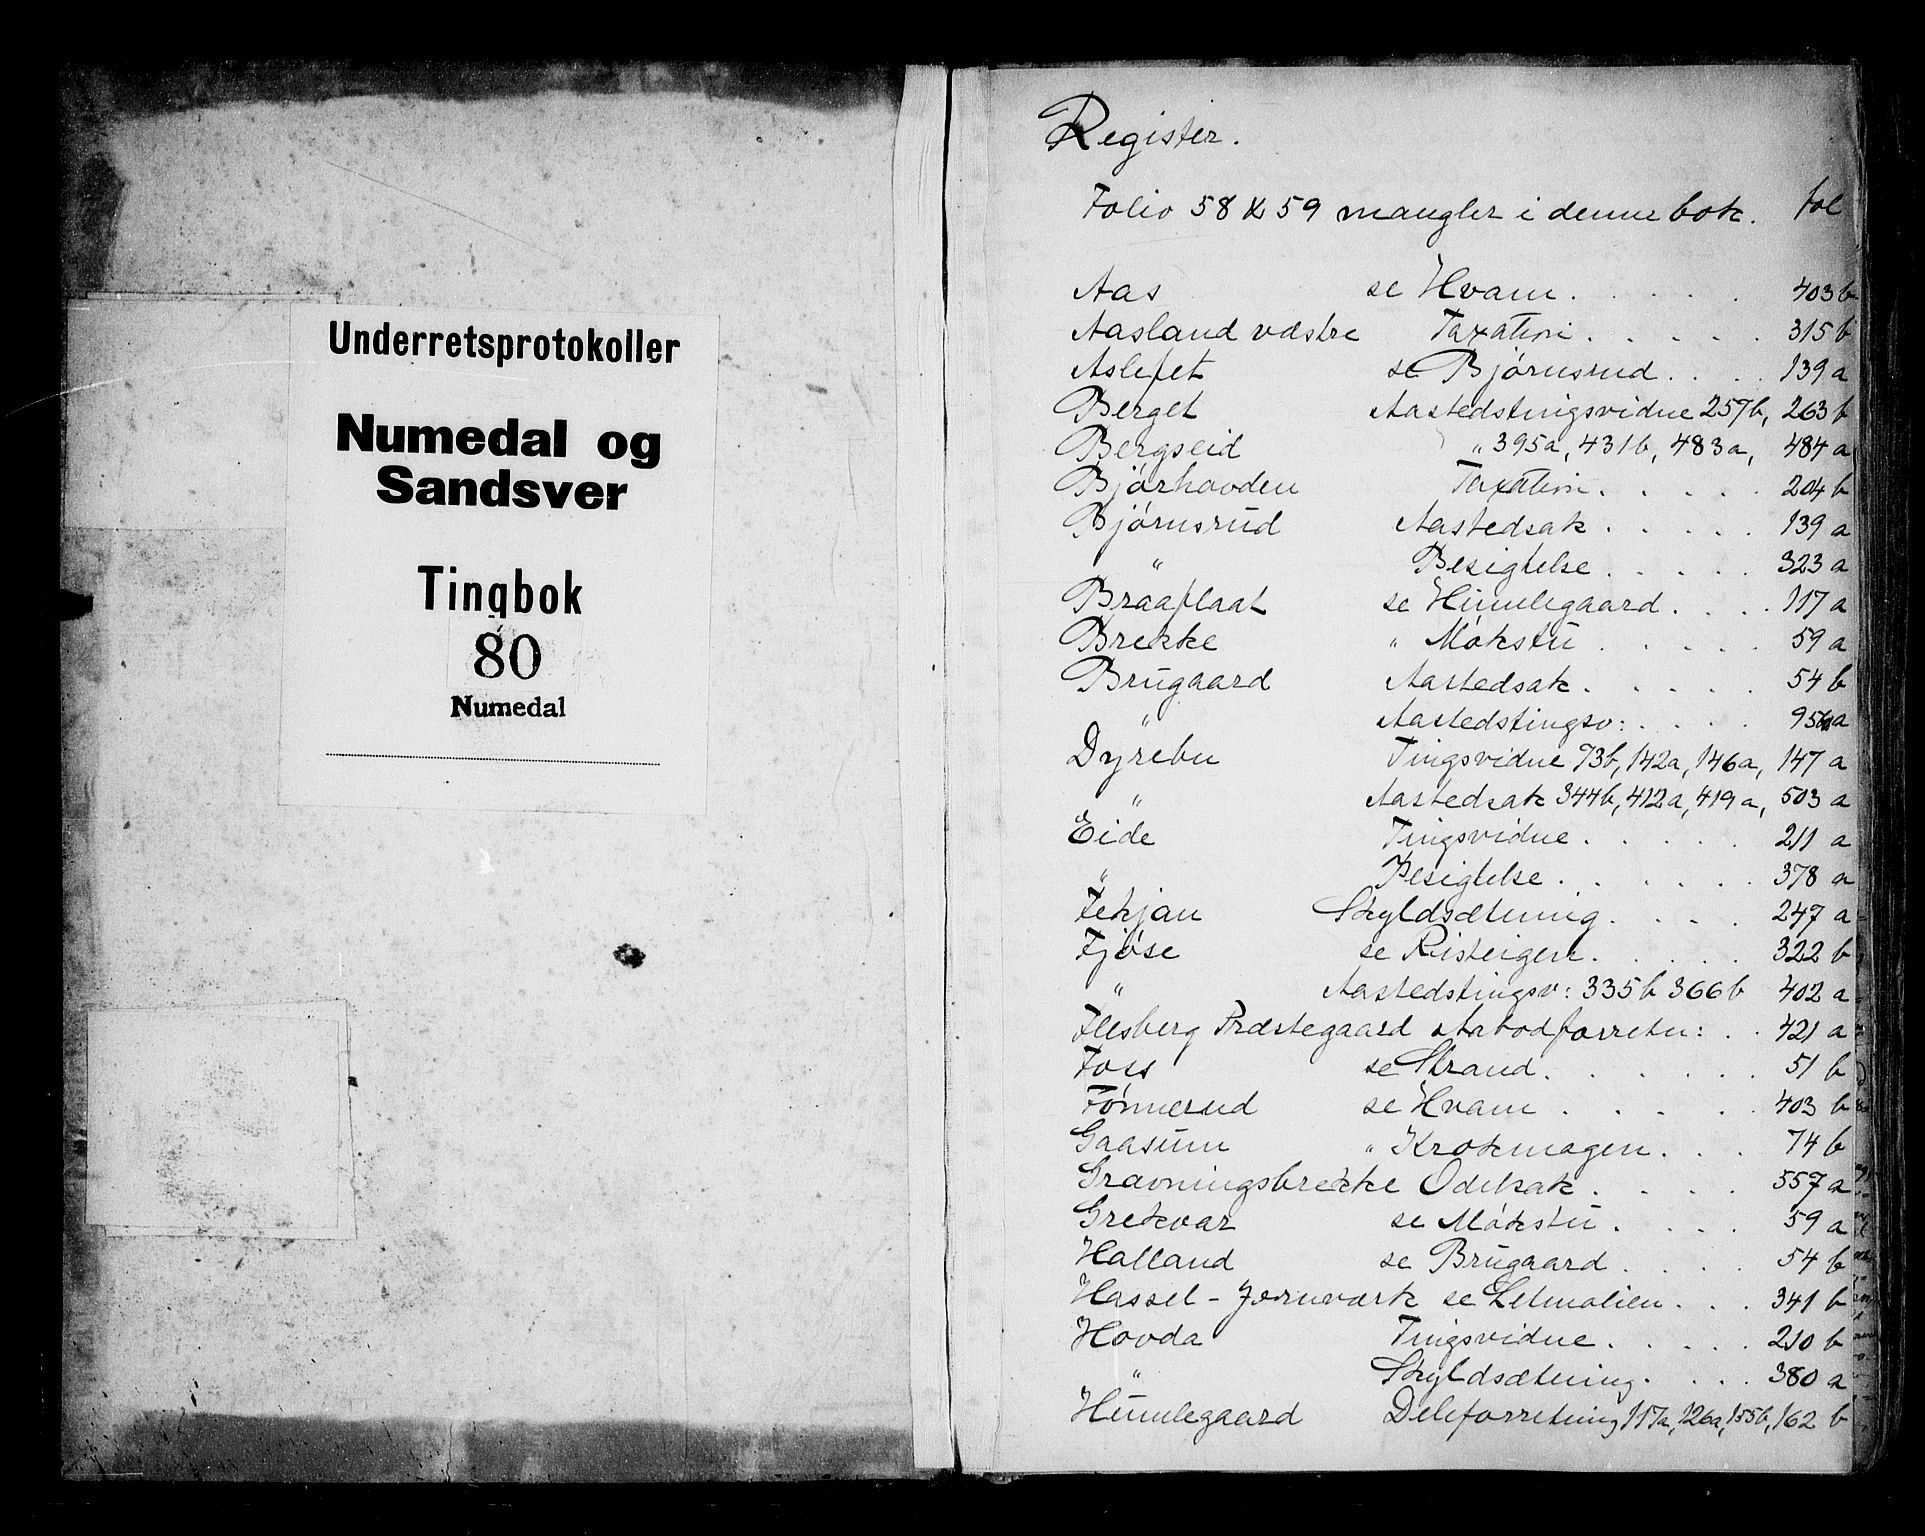 Underretsprotokoller
Numedal og
Sandsver
Tingbok
80
Numedal
Register.
Folio 58 & 59 mangler i denne bok. fol
Aas se Hvam . . . . . 403 b
Aasland væstre Taxation . . . . . 315 b
Aslefet se Bjørnsrud . . . . 139 a
Berget Aastedstingsvidne 257b, 263 b
Bergseid " 395a, 431b, 483a, 484 a
Bjørhovden Taxation . . . . . 204 b
Bjørnsrud Aastedsak . . . . . 139 a
" Besigtelse . . . . . 323 a
Braaflaat se Humlegaard . . . . 117 a
Brekke " Møkstu . . . . . 59 a
Brugaard Aastedsak . . . . . 54 b
" Aastedstingsv: . . . . a
Dyrebu Tingsvidne 73b, 142a, 146a, 147 a
" Aastedsak 344b, 412a, 419a, 503 a
Eide Tingsvidne . . . . . 211 a
" Besigtelse . . . . . 378 a
Fekjan Skyldsætning . . . . 247 a
Fjøse se Risteigen . . . . . 322 b
" Aastedstingsv: 335b 366b 402 a
Flesberg Præstegaard Aabodforretn: . . 421 a
Foss se Strand . . . . . . 51 b
Fønnerud se Hvam . . . . . 403 b
Gaasum " Krokmogen . . . 74 b
Gravningsbrekke Odelsak . . . . . 557 a
Grekvar se Møkstu . . . . 59 a
Halland se Brugaard . . . . 54 b
Hassel-Jernværk se Letmolien . . . 341 b
Hovda Tingsvidne . . . . . 210 b
" Skyldsætning . . . . 380 a
Humlegaard Deleforretning 117a, 126a, 155b, 162 b